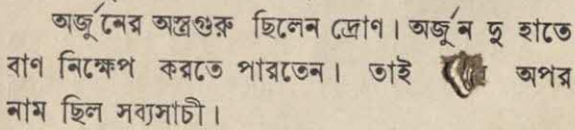 অর্জুনের অস্ত্রগুরু ছিলেন দ্রোণ। অর্জুন দু হাতে
বাণ নিক্ষেপ করতে পারতেন। তাই অপর
নাম ছিল সব্যসাচী।